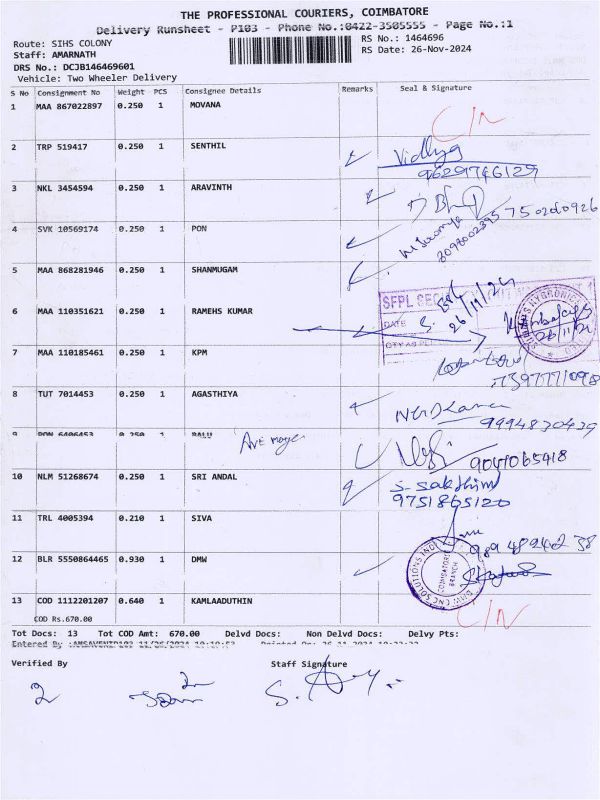 THE PROFESSIONAL COURIERS, COIMBATORE
Delivery Runsheet - P103 - Phone No.:0422-3505555 - Page No.:1
Route: SIHS COLONY
RS No.: 1464696
Staff: AMARNATH
RS Date: 26-Nov-2024
DRS No.: DCJB146469601
Vehicle: Two Wheeler Delivery
S No Consignment No Weight PCS Consignee Details Remarks Seal & Signature
1 MAA 867022897 0.250 1 MOVANA C/N
2 TRP 519417 0.250 1 SENTHIL Vidhya
9629746129
3 NKL 3454594 0.250 1 ARAVINTH
8098002395
4 SVK 10569174 0.250 1 PON
5 MAA 868281946 0.250 1 SHANMUGAM
6 MAA 110351621 0.250 1 RAMEHS KUMAR
DATE 26/11/24
7 MAA 110185461 0.250 1 KPM
8 TUT 7014453 0.250 1 AGASTHIYA
9994830439
9 PON 6406453 0.250 1 BALU
9041065918
10 NLM 51268674 0.250 1 SRI ANDAL S. Sakthim
9751865120
11 TRL 4005394 0.210 1 SIVA
12 BLR 5550864465 0.930 1 DMW
DMW CNC SOLUTIONS IND
COIMBATORE BRANCH
13 COD 1112201207 0.640 1 KAMLAADUTHIN C/N
COD Rs.670.00
Tot Docs: 13 Tot COD Amt: 670.00 Delvd Docs: Non Delvd Docs: Delvy Pts:
Verified By Staff Signature